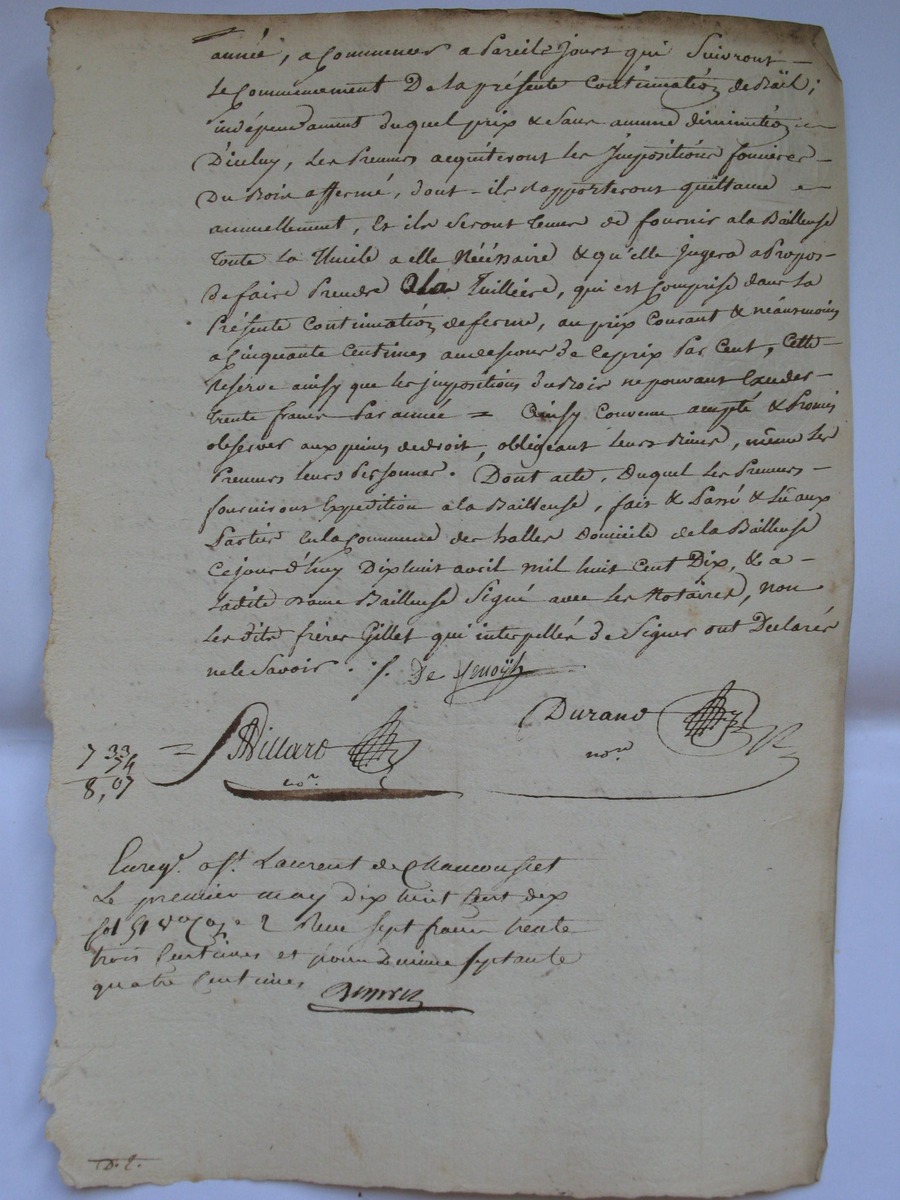 année, a Commencer a Pareils Jours qui Suivront
Le Commencement De la présente Continuation de Bail;
indépendament duquel prix & Sans aucune diminution
D'iceluy, Les Preneurs acquiteront les Impositions foncieres
Du Bois affermé, dont ils rapporteront quittance
annuellement, Et ils Seront Tenus de fournir a la Bailleuse
Toute la Thuile a elle Nécéssaire & qu'elle Jugera a Propos
De faire Prendre a la Tuilliere, qui est Comprise dans La
Présente Continuation de ferme, au prix Courant & néanmoins
a Cinquante Centimes audessous de Ce prix Par Cent, Cette
Reserve ainsy que les jmpositions du Bois ne pouvant Exceder
trente francs Par année = Ainsy Convenu accepté & Promis
observer aux peines de droit, obligeant leurs Biens, même Les
Preneurs leurs Personnes. Dont acte, Duquel Les Preneurs
fourniront Expedition a la Bailleuse, fait & Passé & Lû aux
Parties En la Commune des halles Domicile de la Bailleuse
Ce jourd'huy Dixhuit avril mil huit Cent Dix, & a
Ladite Dame Bailleuse Signé avec Les Notaires, non
Les dits frères Gillet qui interpellés de Signer ont Declarés
ne le Savoir. /.
De
Durand
nore
Villard
nore
7 33
74
8,07
Enregé. a St. Laurent de Chamousset
Le premier may dix huit Cent dix
fol 51 vo Ce 2 Reçu Sept francs trente
trois Centimes et pour Dixime Septante
quatre Centimes
D. E.